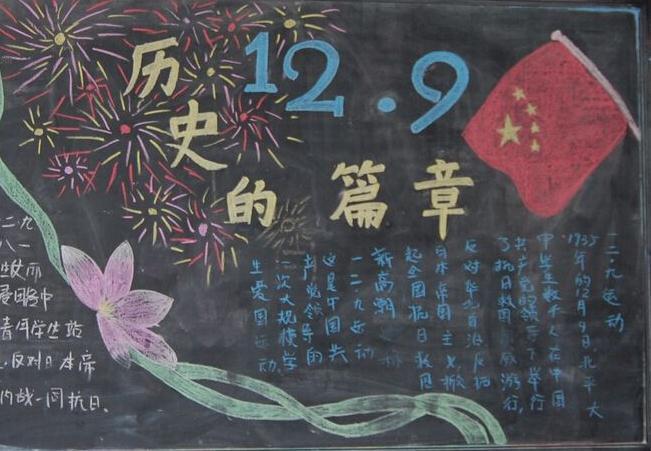 历史
12.9
的篇章
一二九运动
1935年的12月9日北平大
中学生数千人在中国
共产党的领导下举行
了抗日救国示威游行,
反对华北自治反抗
日本帝国主义,掀
起全国抗日救国
新高潮
一二九运动
这是中国共
产党领导的
一次大规模学
生爱国运动.
二九
八一
青年学生站
反对日本帝
内战一同抗日、